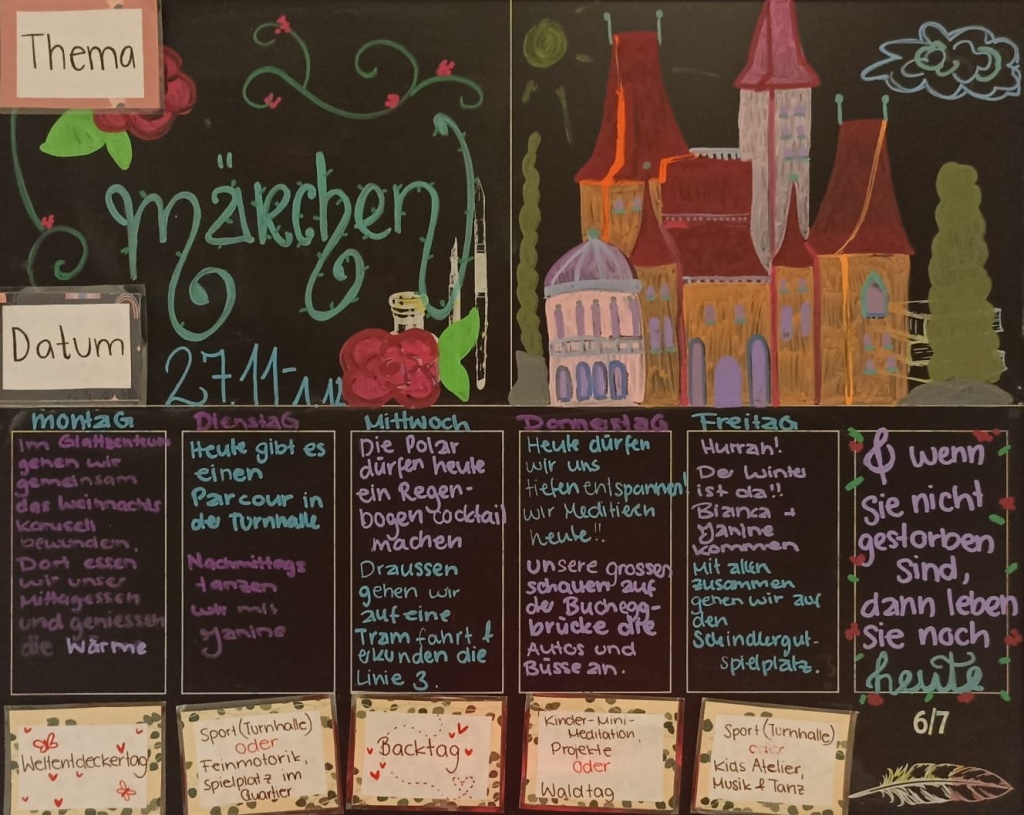 Thema
Märchen
Datum
27.11-
Montag
Im Glattzentrum
gehen wir
gemeinsam
das Weihnachts
karusell
bewundern.
Dort essen
wir unser
Mittagessen
und geniessen
die Wärme
Dienstag
Heute gibt es
einen
Parcour in
der Turnhalle
Nachmittags
tanzen
wir mit
Janine
Mittwoch
Die Polar
dürfen heute
ein Regen-
bogen cocktail
machen
Draussen
gehen wir
auf eine
Tram fahrt &
erkunden die
Linie 3.
Donnerstag
Heute dürfen
wir uns
tiefen entspannen!
wir Meditieren
heute!!
unsere grossen
schauen auf
der Buchegg-
brücke die
Autos und
Büsse an.
Freitag
Hurrah!
Der Winter
ist da!!
Bianka +
Janine
kommen
Mit allen
zusammen
gehen wir auf
den
Schindlergut-
spielplatz.
& wenn
Sie nicht
gestorben
Sind,
dann leben
Sie noch
heute
Weltentdeckertag
Sport (Turnhalle)
oder
Feinmotorik,
Spielplatz im
Quartier
Backtag
Kinder-Mini-
Meditation,
Projekte
oder
Waldtag
Sport (Turnhalle)
oder
Kids Atelier,
Musik & Tanz
6/7